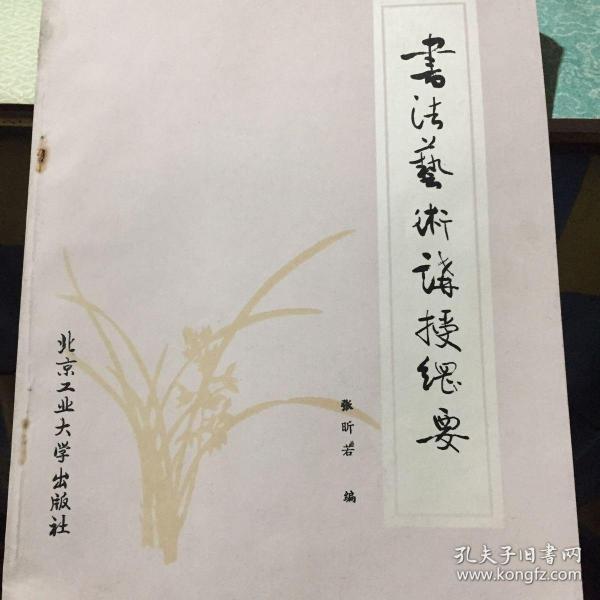 書法藝術講授綱要
张昕若 编
北京工业大学出版社
孔夫子旧書网
www.kongfz.com